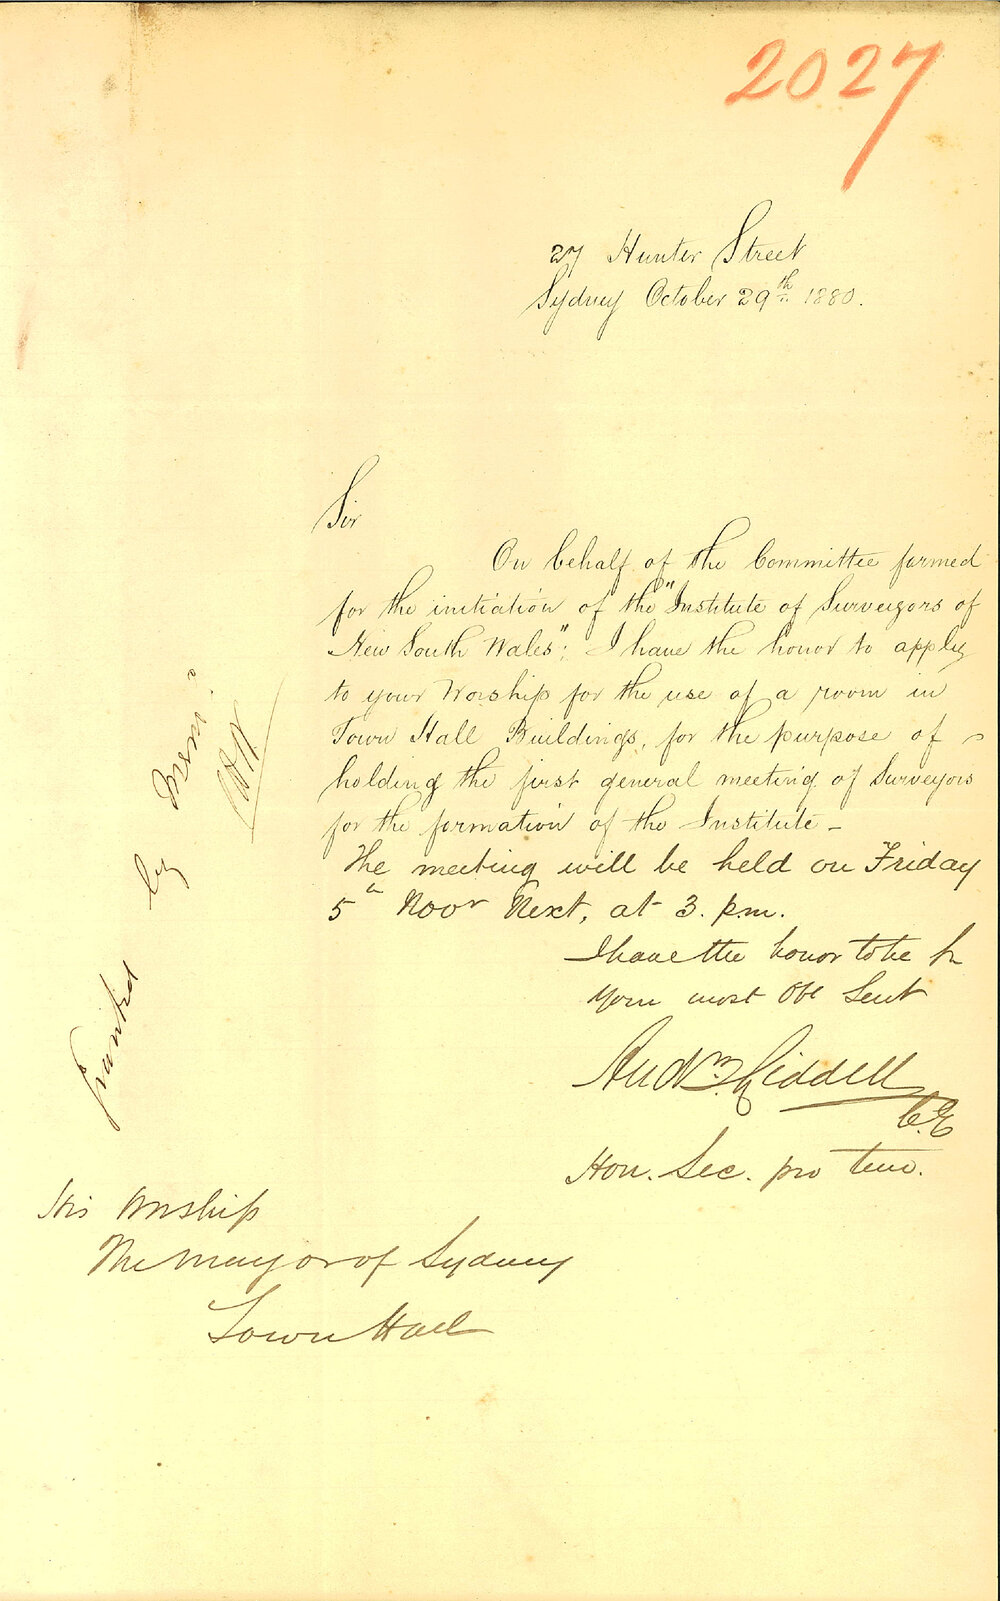 2027
27 Hunter Street
Sydney October 29th 1880.
Sir
On behalf of the Committee formed
for the initiation of the "Institute of Surveyors of
New South Wales"; I have the honor to apply
to your Worship for the use of a room in
Town Hall Buildings, for the purpose of
holding the first general meeting of Surveyors
for the formation of the Institute -
The meeting will be held on Friday
5th Novr Next, at 3. p.m.
I have the honor to be Sr
Your most Obt Servt
Andw Liddell
C.E
Hon. Sec. pro tem.
Granted by Memo
His Worship
The Mayor of Sydney
Town Hall